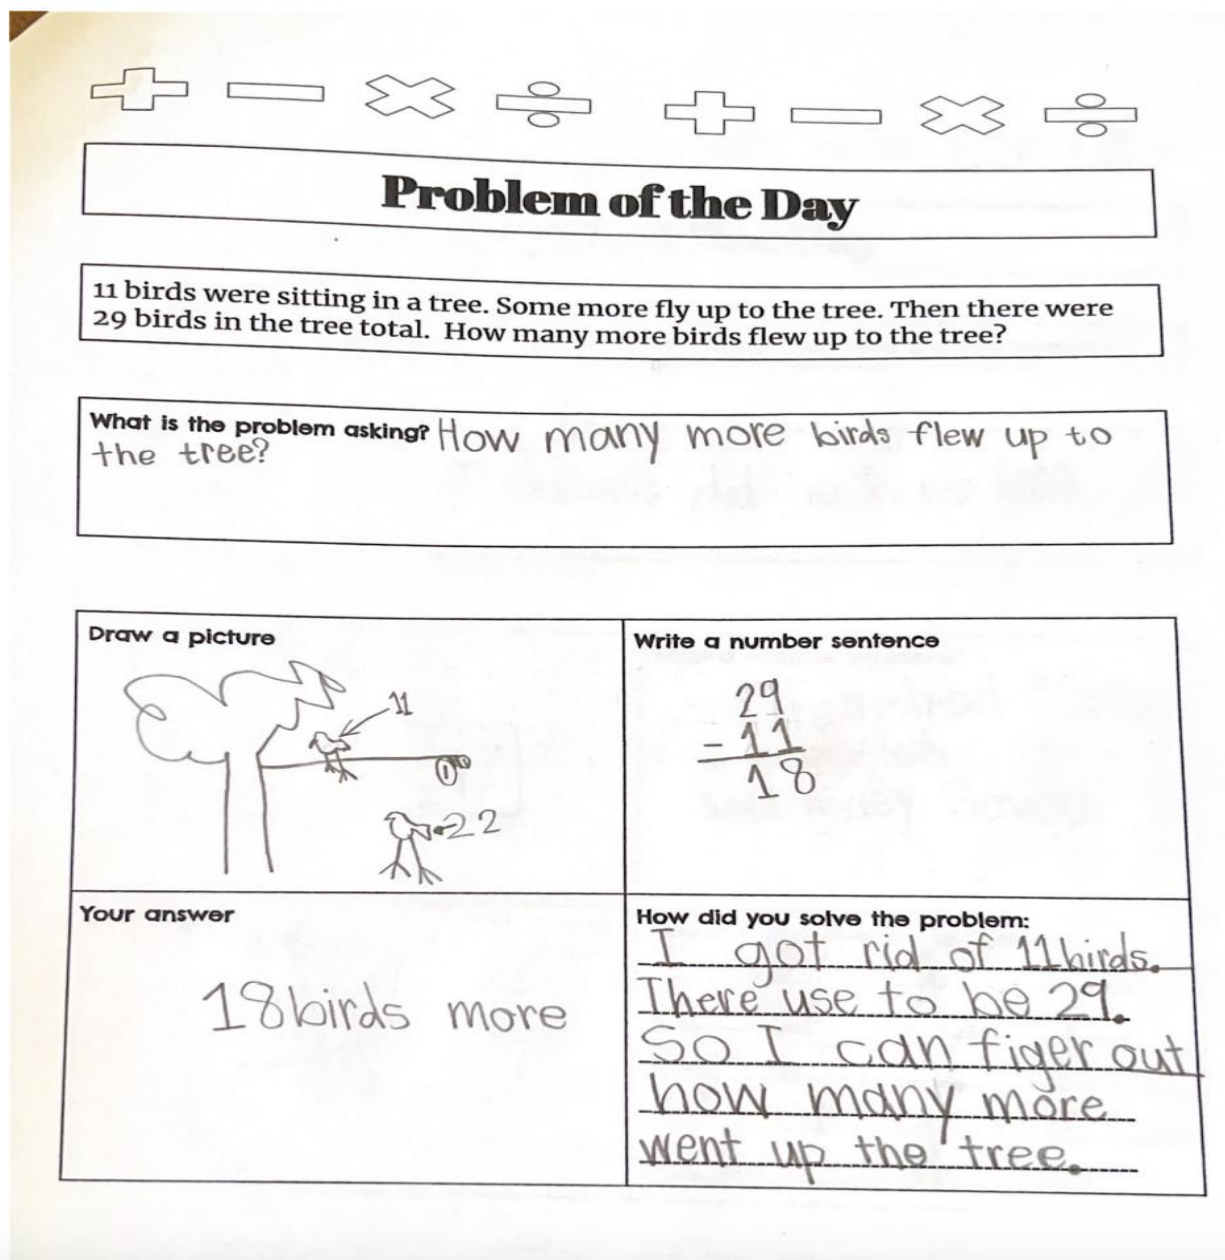 Problem of the Day
11 birds were sitting in a tree. Some more fly up to the tree. Then there were
29 birds in the tree total. How many more birds flew up to the tree?
What is the problem asking? How many more birds flew up to
the tree?
Draw a picture
11
22
Write a number sentence
29
- 11
18
Your answer
18 birds more
How did you solve the problem:
I got rid of 11 birds.
There use to be 29.
So I can figer out
how many more
went up the tree.